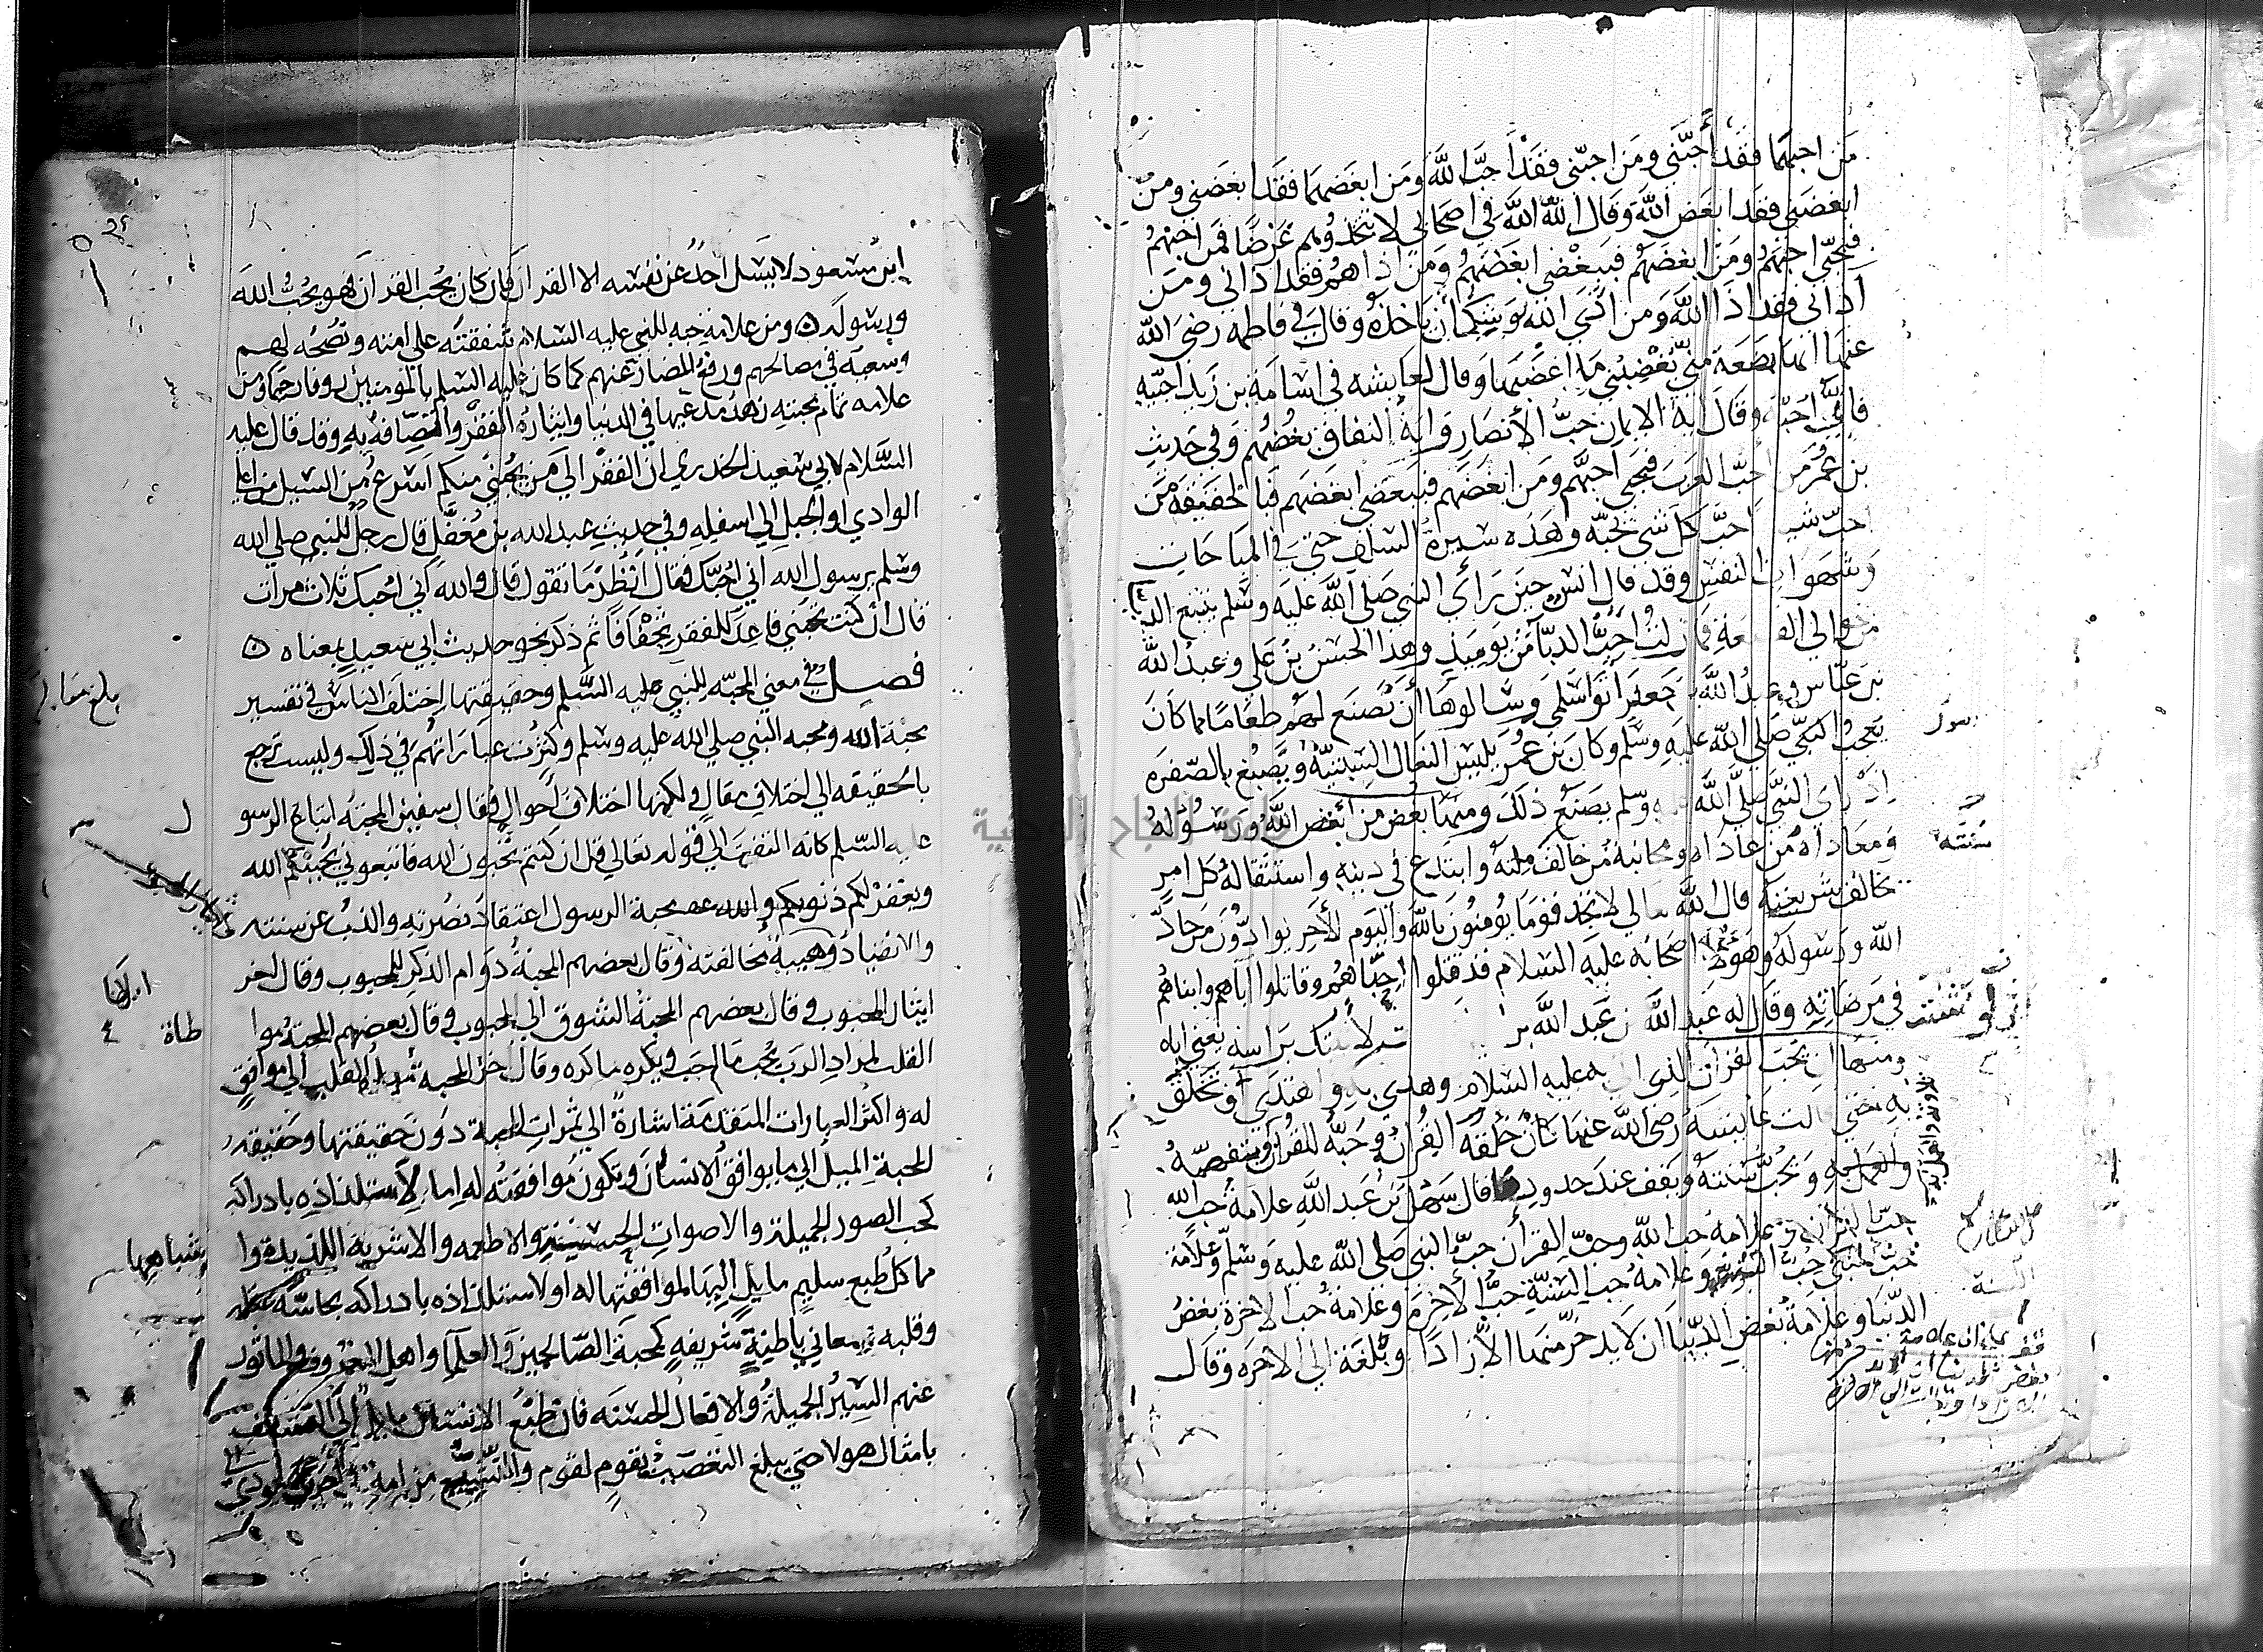 من احبهما فقد أحبني ومن احبني فقد أحب الله ومن ابغضهما فقد ابغضني ومن
ابغضني فقد ابغض الله وقال الله الله في اصحابي لا تتخذوهم غرضا فمن احبهم
فبحبي احبهم ومن ابغضهم فببغضي ابغضهم ومن اذاهم فقد اذاني ومن
آذاني فقد اذا الله ومن اذى الله يوشك أن ياخذه وقال في فاطمه رضي الله
عنها انها بضعة مني يغضبني ما اغضبها وقال لعايشه في اسامة بن زيد احبيه
فاني أحبه وقال اية الايمان حب الأنصار واية النفاق بغضهم وفي حديث
بن عمر من احب العرب فبحبي احبهم ومن ابغضهم فببغضي ابغضهم فبالحقيقة من
احب شيا احب كل شي يحبه وهذه سيرة السلف حتى في المباحات
وشهوات النفس وقد قال انس حين راى النبي صلى الله عليه وسلم يتتبع الدبا
من حوالي القصعة فما زلت احب الدبا من يوميذ وهذا الحسن بن علي وعبد الله
بن عباس وعبد الله بن جعفر اتوا سلمى وسالوها أن تصنع لهم طعاما مما كان
يعجب النبي صلى الله عليه وسلم وكان بن عمر يلبس النعال السبتية ويصبغ بالصفرة
اذ راى النبي صلى الله عليه وسلم يصنع ذلك ومنها بغض من أبغض الله ورسوله
ومعاداة من عاداه ومجانبة من خالف ملته وابتدع في دينه واستثقاله كل امر
يخالف شريعته قال الله تعالى لا تجد قوما يومنون بالله واليوم الأخر يوادون من حاد
الله ورسوله وهولا اصحابه عليه السلام قد قتلوا احباهم وقاتلوا آباهم وابناهم
في مرضاته وقال له عبد الله بن عبد الله بن لأتيتك براسه يعني اباه
ومنها ان يحب القرآن الذي اتى به عليه السلام وهدى به واهتدى أو تخلق
به حتى قالت عايشة رضي الله عنها كان خلقه القرآن وحبه للقرآن وتفهمه
والعمل به ويحب سنته ويقف عند حدودها قال سهل بن عبد الله علامة حب الله
حب القرآن وعلامة حب الله وحب القرأن حب النبي صلى الله عليه وسلم وعلامة
حب النبي حب السنة وعلامة حب السنة حب الأخرة وعلامة حب الاخرة بغض
الدنيا وعلامة بغض الدنيا ان لا يدخر منها الا زادا وبلغة الى الاخره وقال
رسول
سنته
السنة
ابن مسعود لا يسل احد عن نفسه الا القران فان كان يحب القران فهو يحب الله
ورسوله ومن علامة حبه للنبي عليه السلام شفقته على امته ونصحه لهم
وسعيه في مصالحهم ورفع المضار عنهم كما كان عليه السلم بالمومنين روفا رحيما ومن
علامه تمام محبته زهد مدعيها في الدنيا وايثاره الفقر واتصافه به وقد قال عليه
السلام لابي سعيد الخدري ان الفقر الي من يحبني منكم اسرع من السيل من اعلى
الوادي او الجبل الى اسفله وفي حديث عبد الله بن مغفل قال رجل للنبي صلى الله
وسلم يرسول الله اني احبك فقال انظر ما تقول قال والله اني احبك ثلاث مرات
قال ان كنت تحبني فاعد للفقر تجفافا ثم ذكر نحو حديث ابي سعيد بمعناه
فصل في معنى المحبه للنبي عليه السلم وحقيقتها اختلف الناس في تفسير
محبة الله ومحبه النبي صلى الله عليه وسلم وكثرت عباراتهم في ذلك وليست ترجع
بالحقيقه الى اختلاف مقال ولكنها اختلاف أحوال فقال سفين المحبة اتباع الرسو
ل
عليه السلم كانه التفت الى قوله تعالى قل ان كنتم تحبون الله فاتبعوني يحببكم الله
ويغفر لكم ذنوبكم والله محبة الرسول اعتقاد نصرته والذب عن سنته
والانقياد وهيبة مخالفته وقال بعضهم المحبة دوام الذكر للمحبوب وقال اخر
ايثار المحبوب وقال بعضهم المحبة الشوق الى المحبوب وقال بعضهم المحبة موا
طاة
القلب لمراد الرب يحب ما احب ويكره ما كره وقال اخر المحبة ميل القلب الى موافق
له واكثر العبارات المتقدمة اشارة الى ثمرات المحبة دون حقيقتها وحقيقة
المحبة الميل الى ما يوافق الانسان وتكون موافقته له اما لاستلذاذه بادراكه
كحب الصور الجميلة والاصوات الحسنة والاطعمه والاشربه اللذيذة وا
شباهها
مما كل طبع سليم مايل اليها لموافقتها له او لاستلذاذه بادراكه بحاسة عقله
وقلبه معاني باطنية شريفه كمحبة الصالحين والعلما واهل المعروف والماثور
عنهم السير الجميلة والافعال الحسنه فان طبع الانسان مايل الى الشغف
بامثال هولا حتى يبلغ التعصب بقوم لقوم والتشيع من امة في اخرى